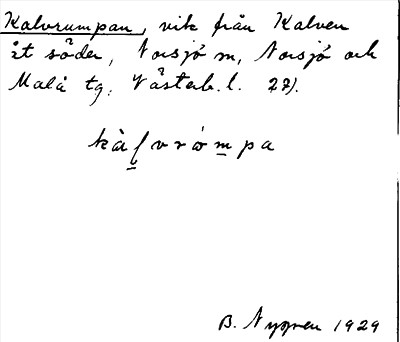 Kalvrumpan, vik från Kalven
åt söder, Norsjö sn, Norsjö och
Malå tg. Västerb. l. 27).
kàl̠vròm̠pa
B. Nygren 1929